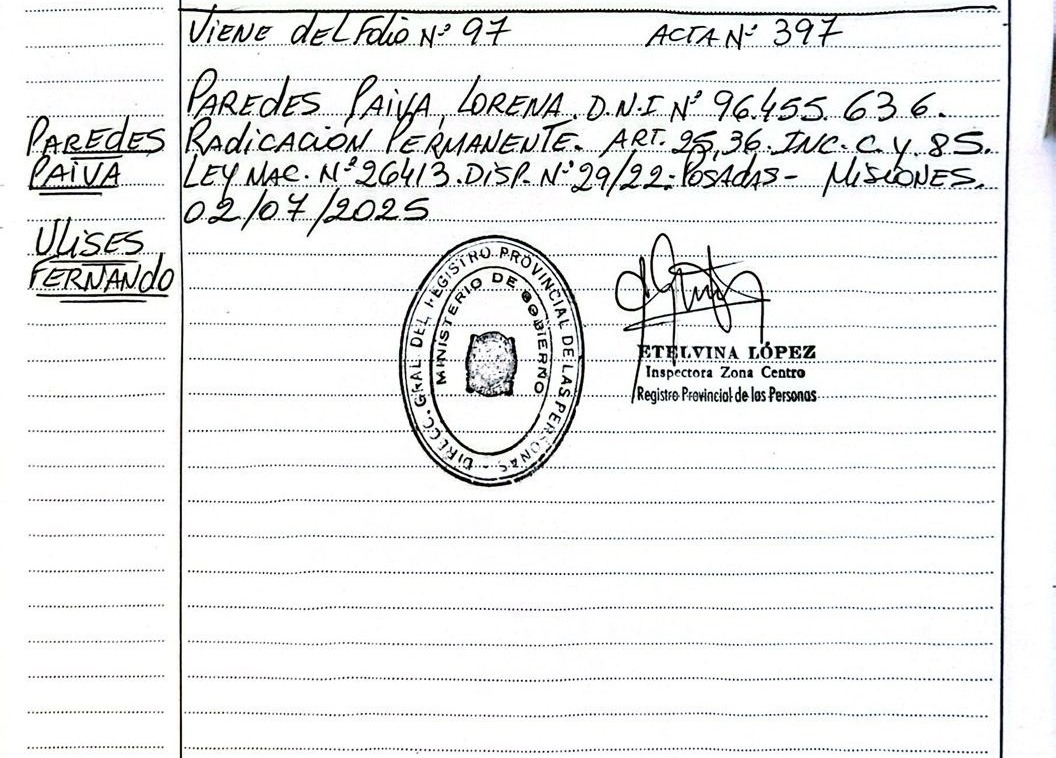 Viene del Folio Nº 97 ACTA Nº 397
PAREDES PAIVA, LORENA. D.N.I Nº 96.455.636.
PAREDES
PAIVA
RADICACIÓN PERMANENTE. ART. 25,36. INC. C. Y. 85.
LEY NAC. Nº 26413. DISP. Nº 29/22. POSADAS - MISIONES.
02/07/2025
ULISES
FERNANDO
DIRECC. GRAL DEL REGISTRO PROVINCIAL DE LAS PERSONAS
MINISTERIO DE GOBIERNO
ETELVINA LÓPEZ
Inspectora Zona Centro
Registro Provincial de las Personas